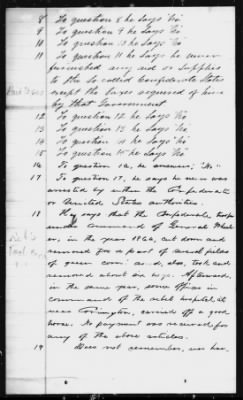 8 To question 8 he says "No"
9 To question 9 he says "No"
10 To question 10 he says "No"
11 To question 11 he says he never
furnished any aid or supplies
to the so called Confederate States
except the taxes required of him
by that Government
12 To question 12 he says "No"
13 To question 13 he says "No"
14 To question 14 he says "No"
15 To question 15 he says "No"
16 To question 16, he answers, "No."
17 To question 17, he says he never was
arrested by either the Confederate
or United States authorities.
18 He says that the Confederate troops
under command of General Wheel-
er, in the year 1864, cut down and
removed for a part of several
of green corn and, also, took and
removed about six hogs. Afterwards,
in the same year, some officer in
command of the rebel hospital, at
near Covington, carried off a good
horse. No payment was received for
any of the above articles.
19 Does not remember, nor has